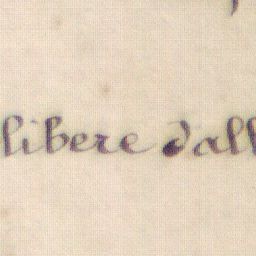 libere d'all